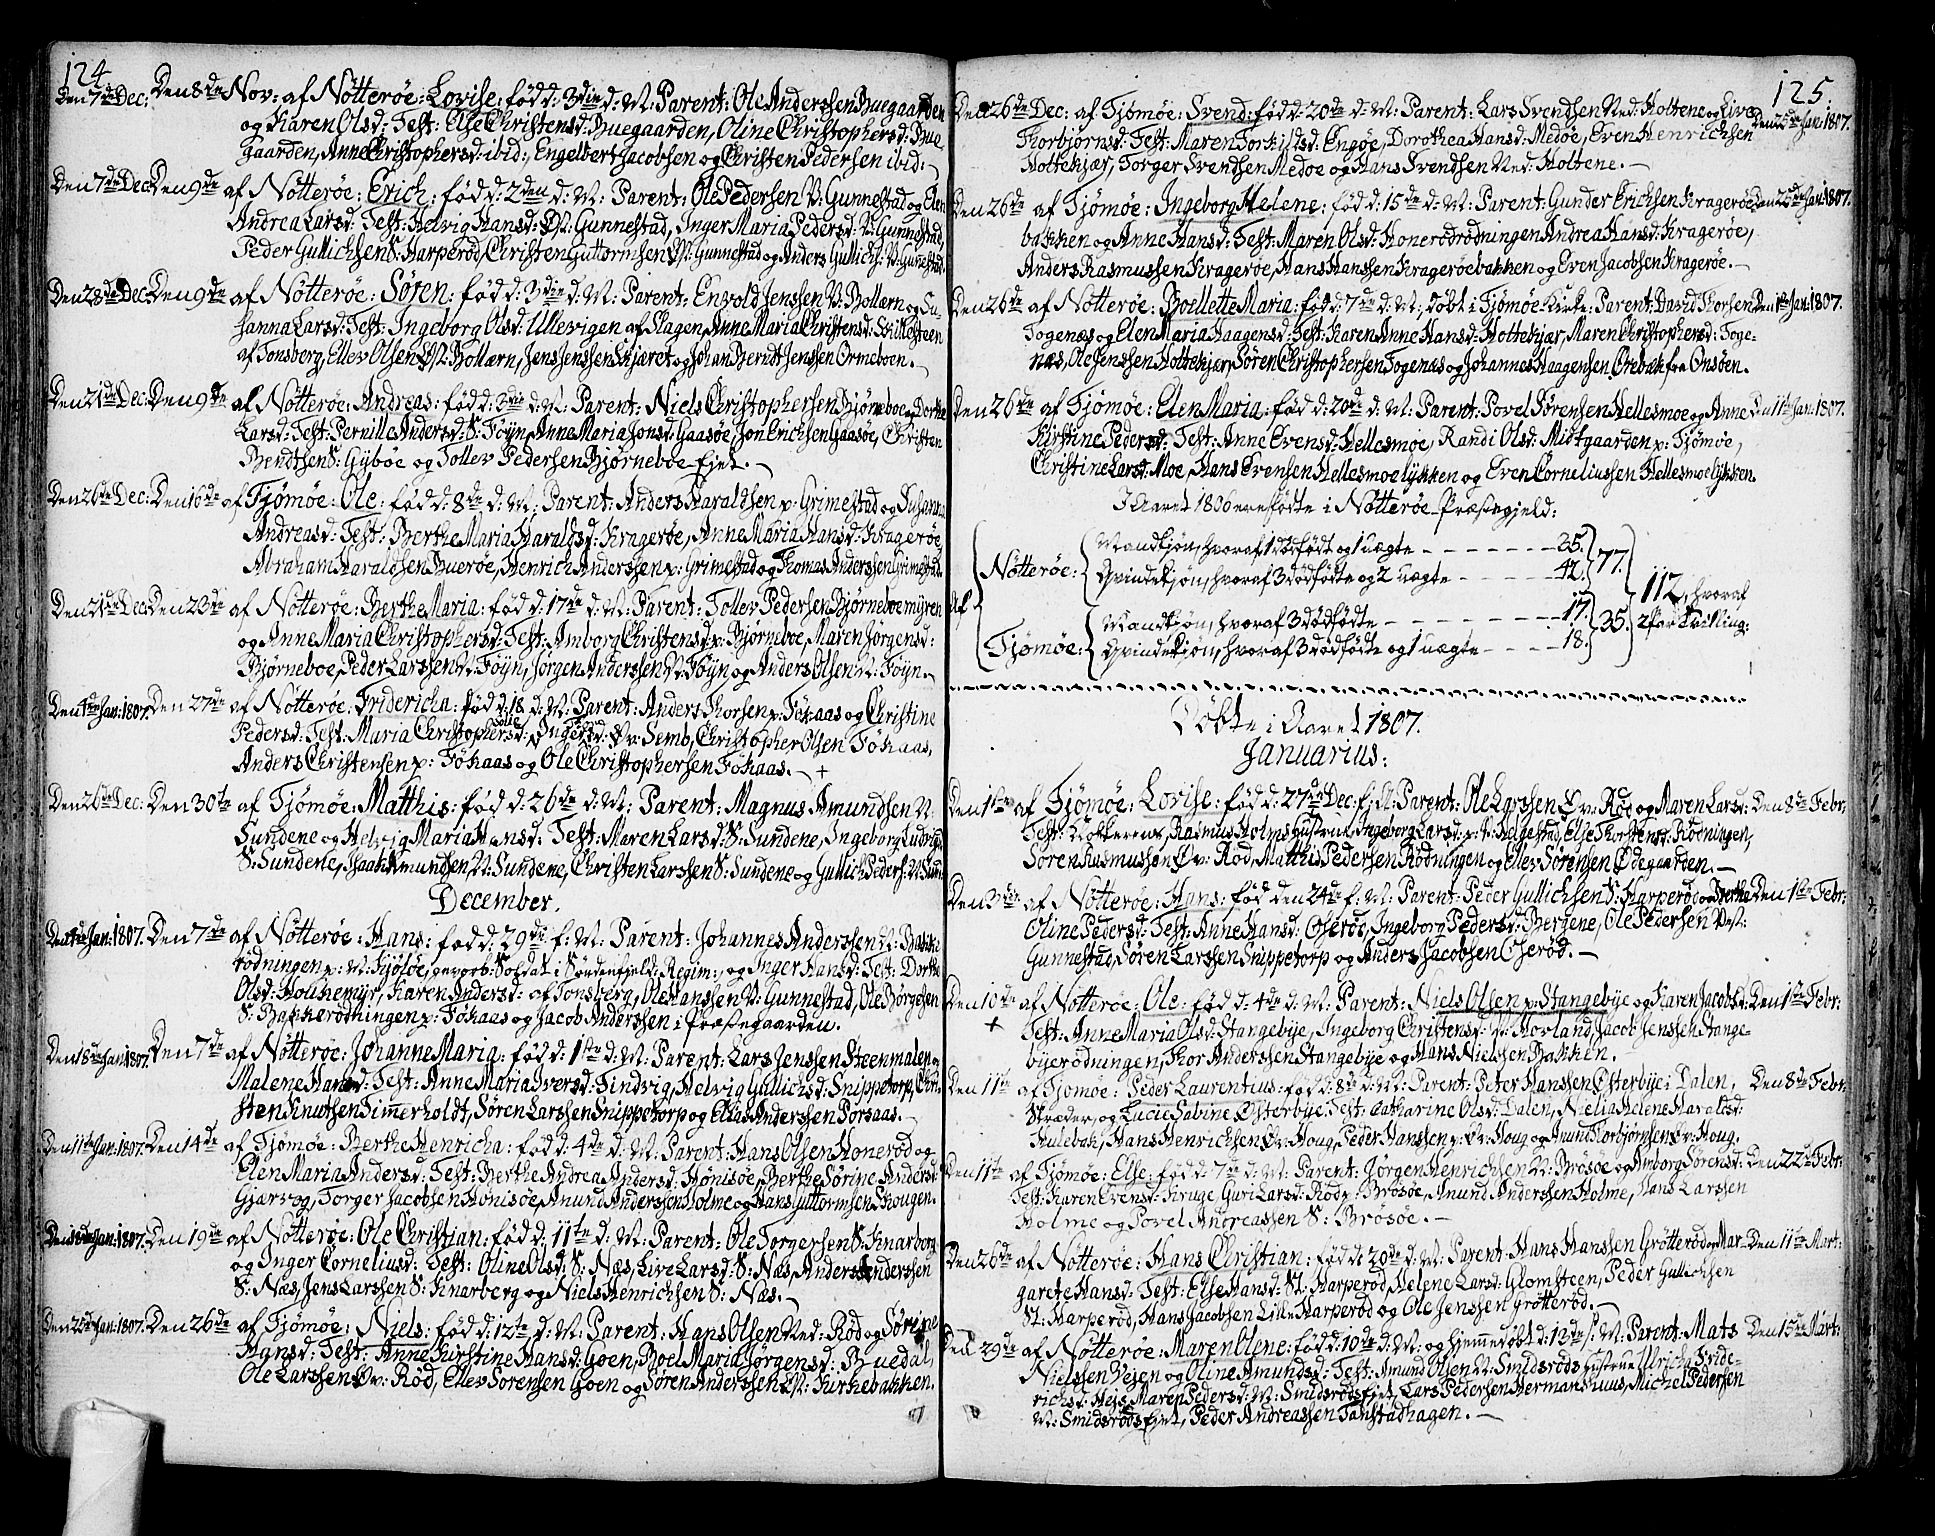 124
Den 7de Dec: Den 8de Nov: af Nötteröe: Lovise: fød d: 3die d: M: Parent: Ole Anderssen Buegaarden
og Karen Olsd: Test: Else Christensd: Buegaarden, Oline Christophersd: Bue
Gaarden, Anne Christophersd: ibid:, Engelbert Jacobsen og Christen Pedersen ibid: –
Den 7de Dec: Den 9de af Nötteröe: Erich: fød d: 2den d: M: Parent: Ole Pedersen V: Gunnestad og Elen
Andrea Larsd: Test: Helvig Hansd: V: Gunnestad, Inger Maria Pedersd: V: Gunnestad,
Peder Gullichsen S: Harperød, Christen Guttormsen V: Gunnestad og Anders Gullichs: V: Gunestad.
Den 28de Dec: Den 9de af Nötteröe: Sören: fød d: 3die d: M: Parent: Envold Jenssen V: Bollærn og Su
sanna Larsd: Test: Ingeborg Olsd: Ullevigen af Slagen, Anne Maria Christensd:
af Tonsberg, Ellev Olsen V: Bollærn, Jens Jenssen Skjæret og Johan Berndt Jenssen Ormeboen. –
Den 21de Dec: Den 9de af Nötteröe: Andreas: fød d: 3die d: M: Parent: Niels Christophersen Bjørneboe og Dorthe
Larsd: Test: Pernille Andersd: S: Föyn, Anne Maria Jonsd: Gaasøe, Jon Erichsen Gaasøe, Christen
Bendtsen S: Gipöe og Tollev Pedersen Bjørneboe Ejet. –
Den 26de Dec: Den 16de af Tjömöe: Ole: fød d: 8de d: M: Parent: Anders Haraldsen p: Grimestad og Susanna
Andreasd: Test: Berthe Maria Haraldsd: Kragerøe, Anne Maria Hansd: Kragerøe,
Abraham Haraldsen Buerøe, Henrich Anderssen p: Grimestad og Thomas Anderssen Grimestad.
Den 21de Dec: Den 23de af Nötteröe: Berthe Maria: fød d: 17de d: M: Parent: Tollev Pedersen Bjørneboemyren
og Anne Maria Christophersd: Test: Amborg Christensd: p: Bjørneboe, Maren Jørgensd:
Bjørneboe, Peder Larssen N: Föyn, Jørgen Anderssen N: Föyn og Anders Olsen N: Föyn. –
Den 1ste Jan: 1807. Den 27de af Nötteröe: Fridericha: fød d: 18 d: M: Parent: Anders Thorsen p: Föhaas og Christine
Pedersd: Test: Maria Christophersd: Inger Ø: Semb, Christopher Olsen Föhaas,
Anders Christensen p: Föhaas og Ole Christophersen Föhaas. – +
Den 26de Dec: Den 30te af Tjömöe: Matthis: fød d: 26de d: M: Parent: Magnus Amundsen N:
Sundene og Helvig Maria Hansd: Test: Maren Larsd: S: Sundene, Ingeborg Ludvigsd:
S: Sundene, Isaach Amundsen N: Sundene, Christen Larssen S: Sundene og Gullich Peders: N: Sun
December.
Den 1ste Jan: 1807. Den 7de af Nötteröe: Hans: fød d: 29de f: M: Parent: Johannes Anderssen N: Bakke
rödningen p: N: Kjöløe, gevorb: Soldat i Söndenfjeld: Regim:, og Inger Hansd: Test: Dorthe
Olsd: Holhemyr, Karen Andersd: af Tonsberg, Ole Hanssen V: Gunnestad, Ole Børgesen
S: Bakkerödningen p: Föhaas og Jacob Anderssen i Præstegaarden.
Den 18de Jan: 1807. Den 7de af Nötteröe: Johanne Maria: fød d: 1ste d: M: Parent: Lars Jenssen Steenmalen og
Malene Hansd: Test: Anne Maria Iversd: Tindvig, Helvig Gullichsd: Snippetorp, Chri
sten Knutsen Timmerholdt, Søren Larssen Snippetorp og Elias Anderssen Porsaas. –
Den 11te Jan: 1807. Den 14de af Tjömöe: Berthe Henricha: fød d: 4de d: M: Parent: Hans Olsen Honerød og
Elen Maria Andersd: Test: Berthe Andrea Andersd: Hönisöe, Berthe Sørine Andersd:
Gjærvog, Torger Jacobsen Honisöe, Anund Anderssen Holme og Hans Guttormsen Skougen.
Den 18de Jan: 1807. Den 19de af Nötteröe: Ole Christian: fød d: 11te d: M: Parent: Ole Torgersen S: Knarberg
og Inger Corneliusd: Test: Oline Olsd: S: Næs, Live Larsd: S: Næs, Anders Anderssen
S: Næs, Jens Larssen S: Knarberg og Niels Henrichsen S: Næs. –
Den 25de Jan: 1807. Den 26de af Tjömöe: Niels: fød d: 12te d: M: Parent: Hans Olsen Ned: Rød og Sörine
Hansd: Test: Anne Kirstine Hansd: Goen, Boel Maria Jørgensd: Buedal,
Ole Larssen Øv: Rød, Ellev Sørensen Goen og Søren Anderssen V: Kirkebakken.
125.
Den 26de Dec: af Tjömöe: Svend: fød d: 20de d: M: Parent: Lars Svendsen Ned: Holtene og Live Den 25de Jan: 1807.
Thorbjørnsd: Test: Maren Torkildsd: Engøe, Dorothea Hansd: Medøe, Even Henrichsen
Holtekjær, Torger Svendsen Medøe og Hans Svendsen Ned: Holtene. –
Den 26de af Tjömöe: Ingeborg Helene: fød d: 15de d: M: Parent: Gunder Erichsen Kragerøe Den 25de Jan: 1807.
bakken og Anne Hansd: Test: Maren Olsd: Honerødrödningen Andrea Hansd: Kragerøe,
Anders Rasmussen Kragerøe, Hans Hanssen Kragerøebakken og Even Jacobsen Kragerøe. –
Den 26de af Nötteröe: Boellette Maria: fød d: 7de d: M:, döbt i Tjömöe Kirke: Parent: David Thorsen Den 1ste Jan: 1807.
Togenæs og Elen Maria Haagensd: Test: Karen Anne Hansd: Holtekjær, Maren Christophersd: Toge-
næs, Ole Jenssen Holtekjær, Søren Christophersen Togenæs og Johannes Haagensen Ørebak fra Onsøen.
Den 26de af Tjömöe: Elen Maria: fød d: 20de d: M: Parent: Povel Sørensen Hellesmoe og Anne Den 11te Jan: 1807.
Kirstine Pedersd: Test: Anne Evensd: Hellesmoe, Randi Olsd: Midtgaarden p: Tjömöe,
Christine Larsd: Moe, Hans Evensen Hellesmoeløkken og Even Corneliussen Hellesmoeløkken.
I Aaret 1806 ere fødte i Nötteröe Præstegjeld:
Af Nötteröe: Mandkjøn, hvoraf 1 dødfødt og 1 uægte – – – 35. 77. 112, hvoraf
Qvindekjøn, hvoraf 3 dødfødte og 2 uægte – – – 42.
Tjömöe: Mandkjøn, hvoraf 3 dødfødte – – – 17. 35. 2 Par Tvilling:
Qvindekjøn, hvoraf 3 dødfødte og 1 uægte – – – 18.
Døbte i Aaret 1807.
Januarius:
Den 1ste af Tjömöe: Lovise: fød d: 27de Dec: f: A: Parent: Ole Larssen Øv: Rød og Maren Larsd: Den 8de Febr:
Test: Klokkerens, Rasmus Holms Hustrue, Ingeborg Larsd: p: Helgestad, Else Thorstensd: Rödningen,
Søren Rasmussen Øv: Rød, Matthis Pedersen Rödningen og Ellev Sørensen Ødegaarden. –
Den 3die af Nötteröe: Hans: fød den 24de f: M: Parent: Peder Gullichsen S: Harperød og Berthe Den 1ste Febr:
Oline Pedersd: Test: Anne Hansd: Oserød, Ingeborg Pedersd: Bergene, Ole Pedersen Vest:
Gunnestad, Søren Larssen Snippetorp og Anders Jacobsen Oserød. –
Den 10de af Nötteröe: Ole: fød d: 4de d: M: Parent: Niels Olsen p: Stangebye og Karen Jacobsd: Den 1ste Febr:
+ Test: Anne Maria Olsd: Stangebye, Ingeborg Christensd: N: Horland, Jacob Jenssen Stange-
byerödningen, Thor Anderssen Stangebye og Hans Nielssen Bakken.
Den 11te af Tjomøe: Peder Laurentius: fød d: 8de d: M: Parent: Peter Hanssen Østerbye i Dalen, Den 8de Febr:
Skræder, og Lucie Sabine Østerbye. Test: Catharine Olsd: Dalen, Nielia Helene Haraldsd:
Hulebak, Hans Henrichsen Øv: Houg, Peder Hanssen p: Øv: Houg og Anund Thorbjørnsen Øv: Houg.
Den 11te af Tjømøe: Else: fød d: 7de d: M: Parent: Jørgen Henrichsen N: Brøsøe og Amborg Sørensd: Den 22de Febr:
Test: Karen Evensd: Kruge, Guri Larsd: Röd p: Brøsøe, Anund Anderssen Holme, Hans Larssen
Holme og Povel Andreassen S: Brøsøe. –
Den 26de af Nötteröe: Hans Christian: fød d: 20de d: M: Parent: Hans Hanssen Grötterød og Mar- Den 11te Mart:
garete Hansd: Test: Else Hansd: St: Harperød, Helene Larsd: Glomsteen, Peder Gullichsen
St: Harperød, Hans Jacobsen Lille Harperød og Ole Jenssen Grötterød. –
Den 29de af Nötteröe: Maren Olene: fød d: 10de d: M: og hjemmedøbt d: 12de s: M: Parent: Mats Den 15de Mart:
Nielssen Vejen og Oline Amundsd: Test: Amund Olsen N: Smidsrøds Hustrue Ulricha Fride-
richsd: Hejs, Maren Pedersd: N: Smidsrøds Ejet, Lars Pedersen Hermans huus, Michel Pedersen
N: Smidsrøds Ejet, Peder Andreassen Tanstadhagen. –